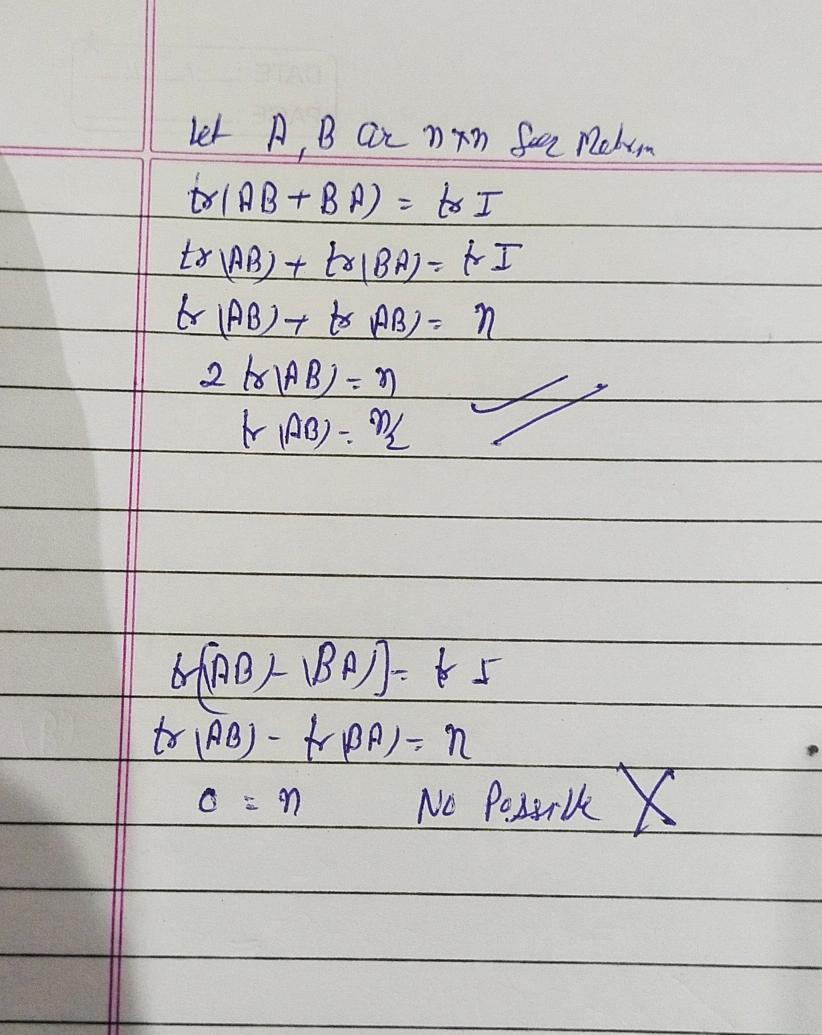 Let A, B are n×n Matrix
tr(AB + BA) = tr I
tr(AB) + tr(BA) = tr I
tr(AB) + tr(AB) = n
2 tr(AB) = n
tr(AB) = n/2
tr[(AB) - (BA)] = tr I
tr(AB) - tr(BA) = n
0 = n No Possible X